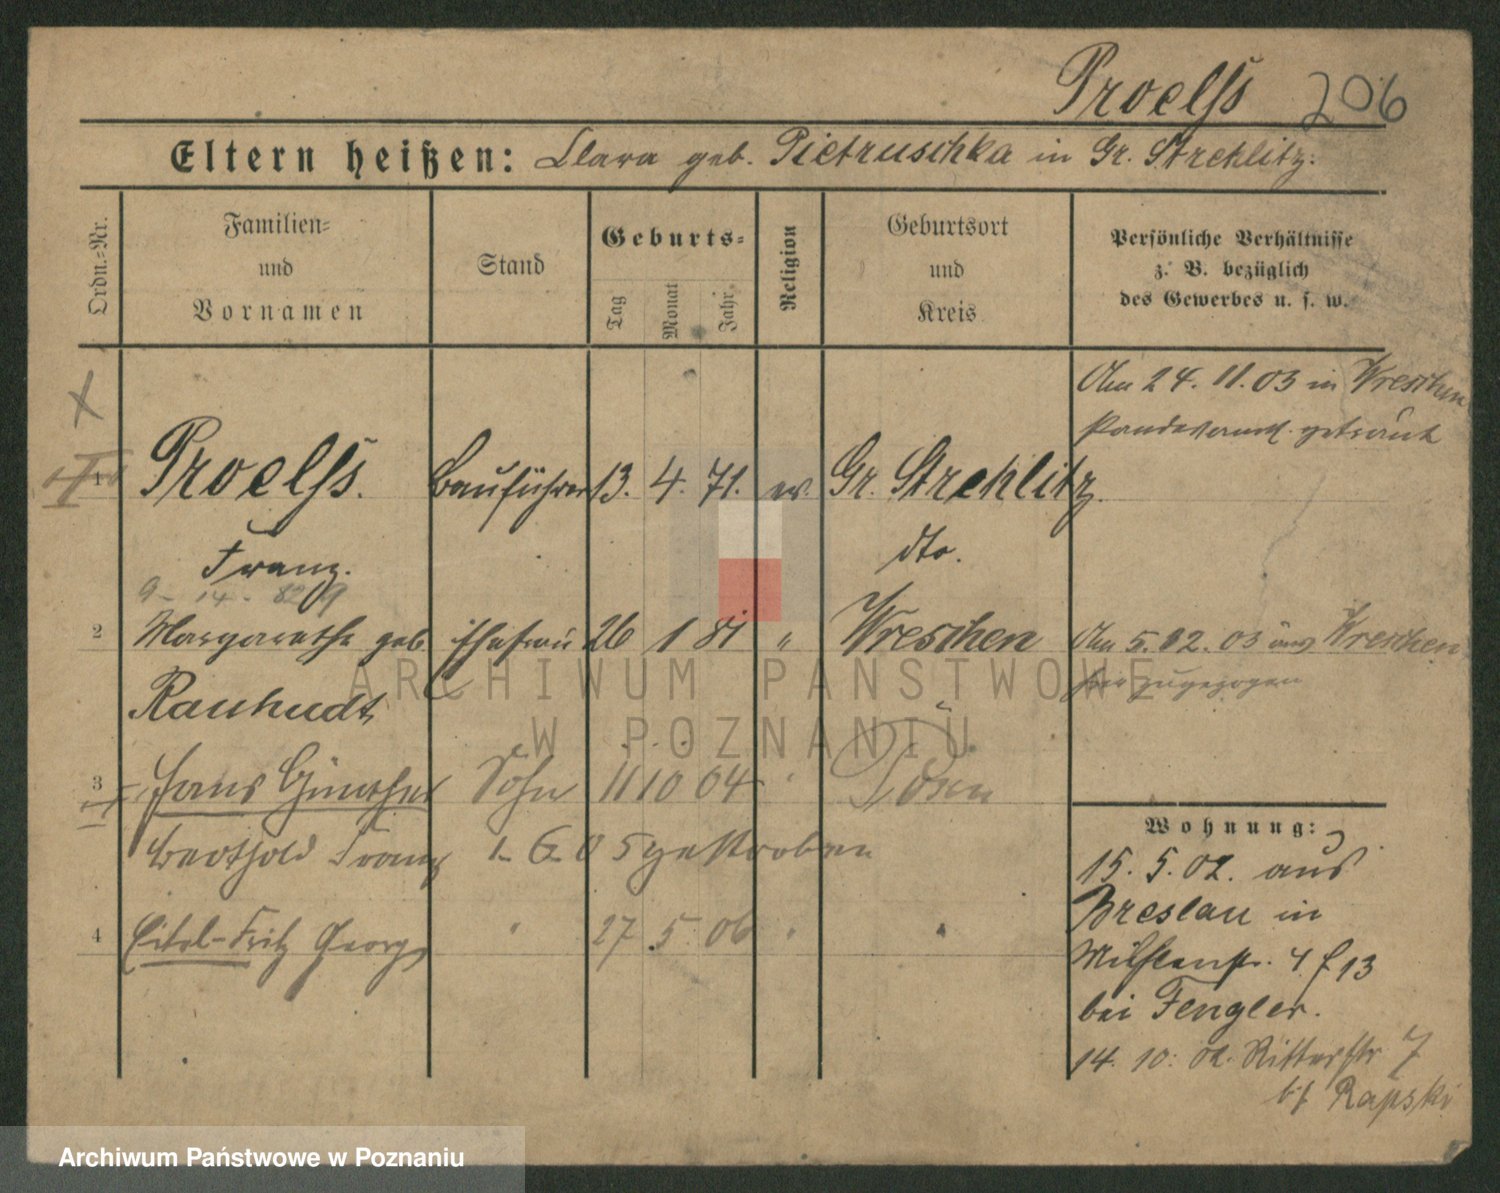 Proelss 206
Eltern heißen: Clara geb. Pietruschka in Gr. Strehlitz.
Ordn.-Nr.
Familien-
und
Vornamen
Stand
Geburts-
Tag
Monat
Jahr
Religion
Geburtsort
und
Kreis
Persönliche Verhältnisse
z. B. bezüglich
des Gewerbes u. s. w.
Am 24. 11. 03 in Wreschen
standesamtl. getraut
1 Proelss. Bauführer 13. 4. 71. ev. Gr. Strehlitz.
Franz. dto.
9 - 14 - 82
2 Margarethe geb Ehefrau 26 1 81 " Wreschen
Am 5. 12. 03 aus Wreschen
hier zugezogen
Rauhudt
3 Hans Günther Sohn 11 10 04 " Posen
Berthold Franz 1. 6. 05 gestorben
4 Eitel-Fritz Georg " 27 5 06 " "
Wohnung:
15. 5. 02. aus
Breslau in
4 f 13
bei Fengler.
14. 10. 02. Ritterstr 7
b/ Rapski
ARCHIWUM PAŃSTWOWE
W POZNANIU
Archiwum Państwowe w Poznaniu